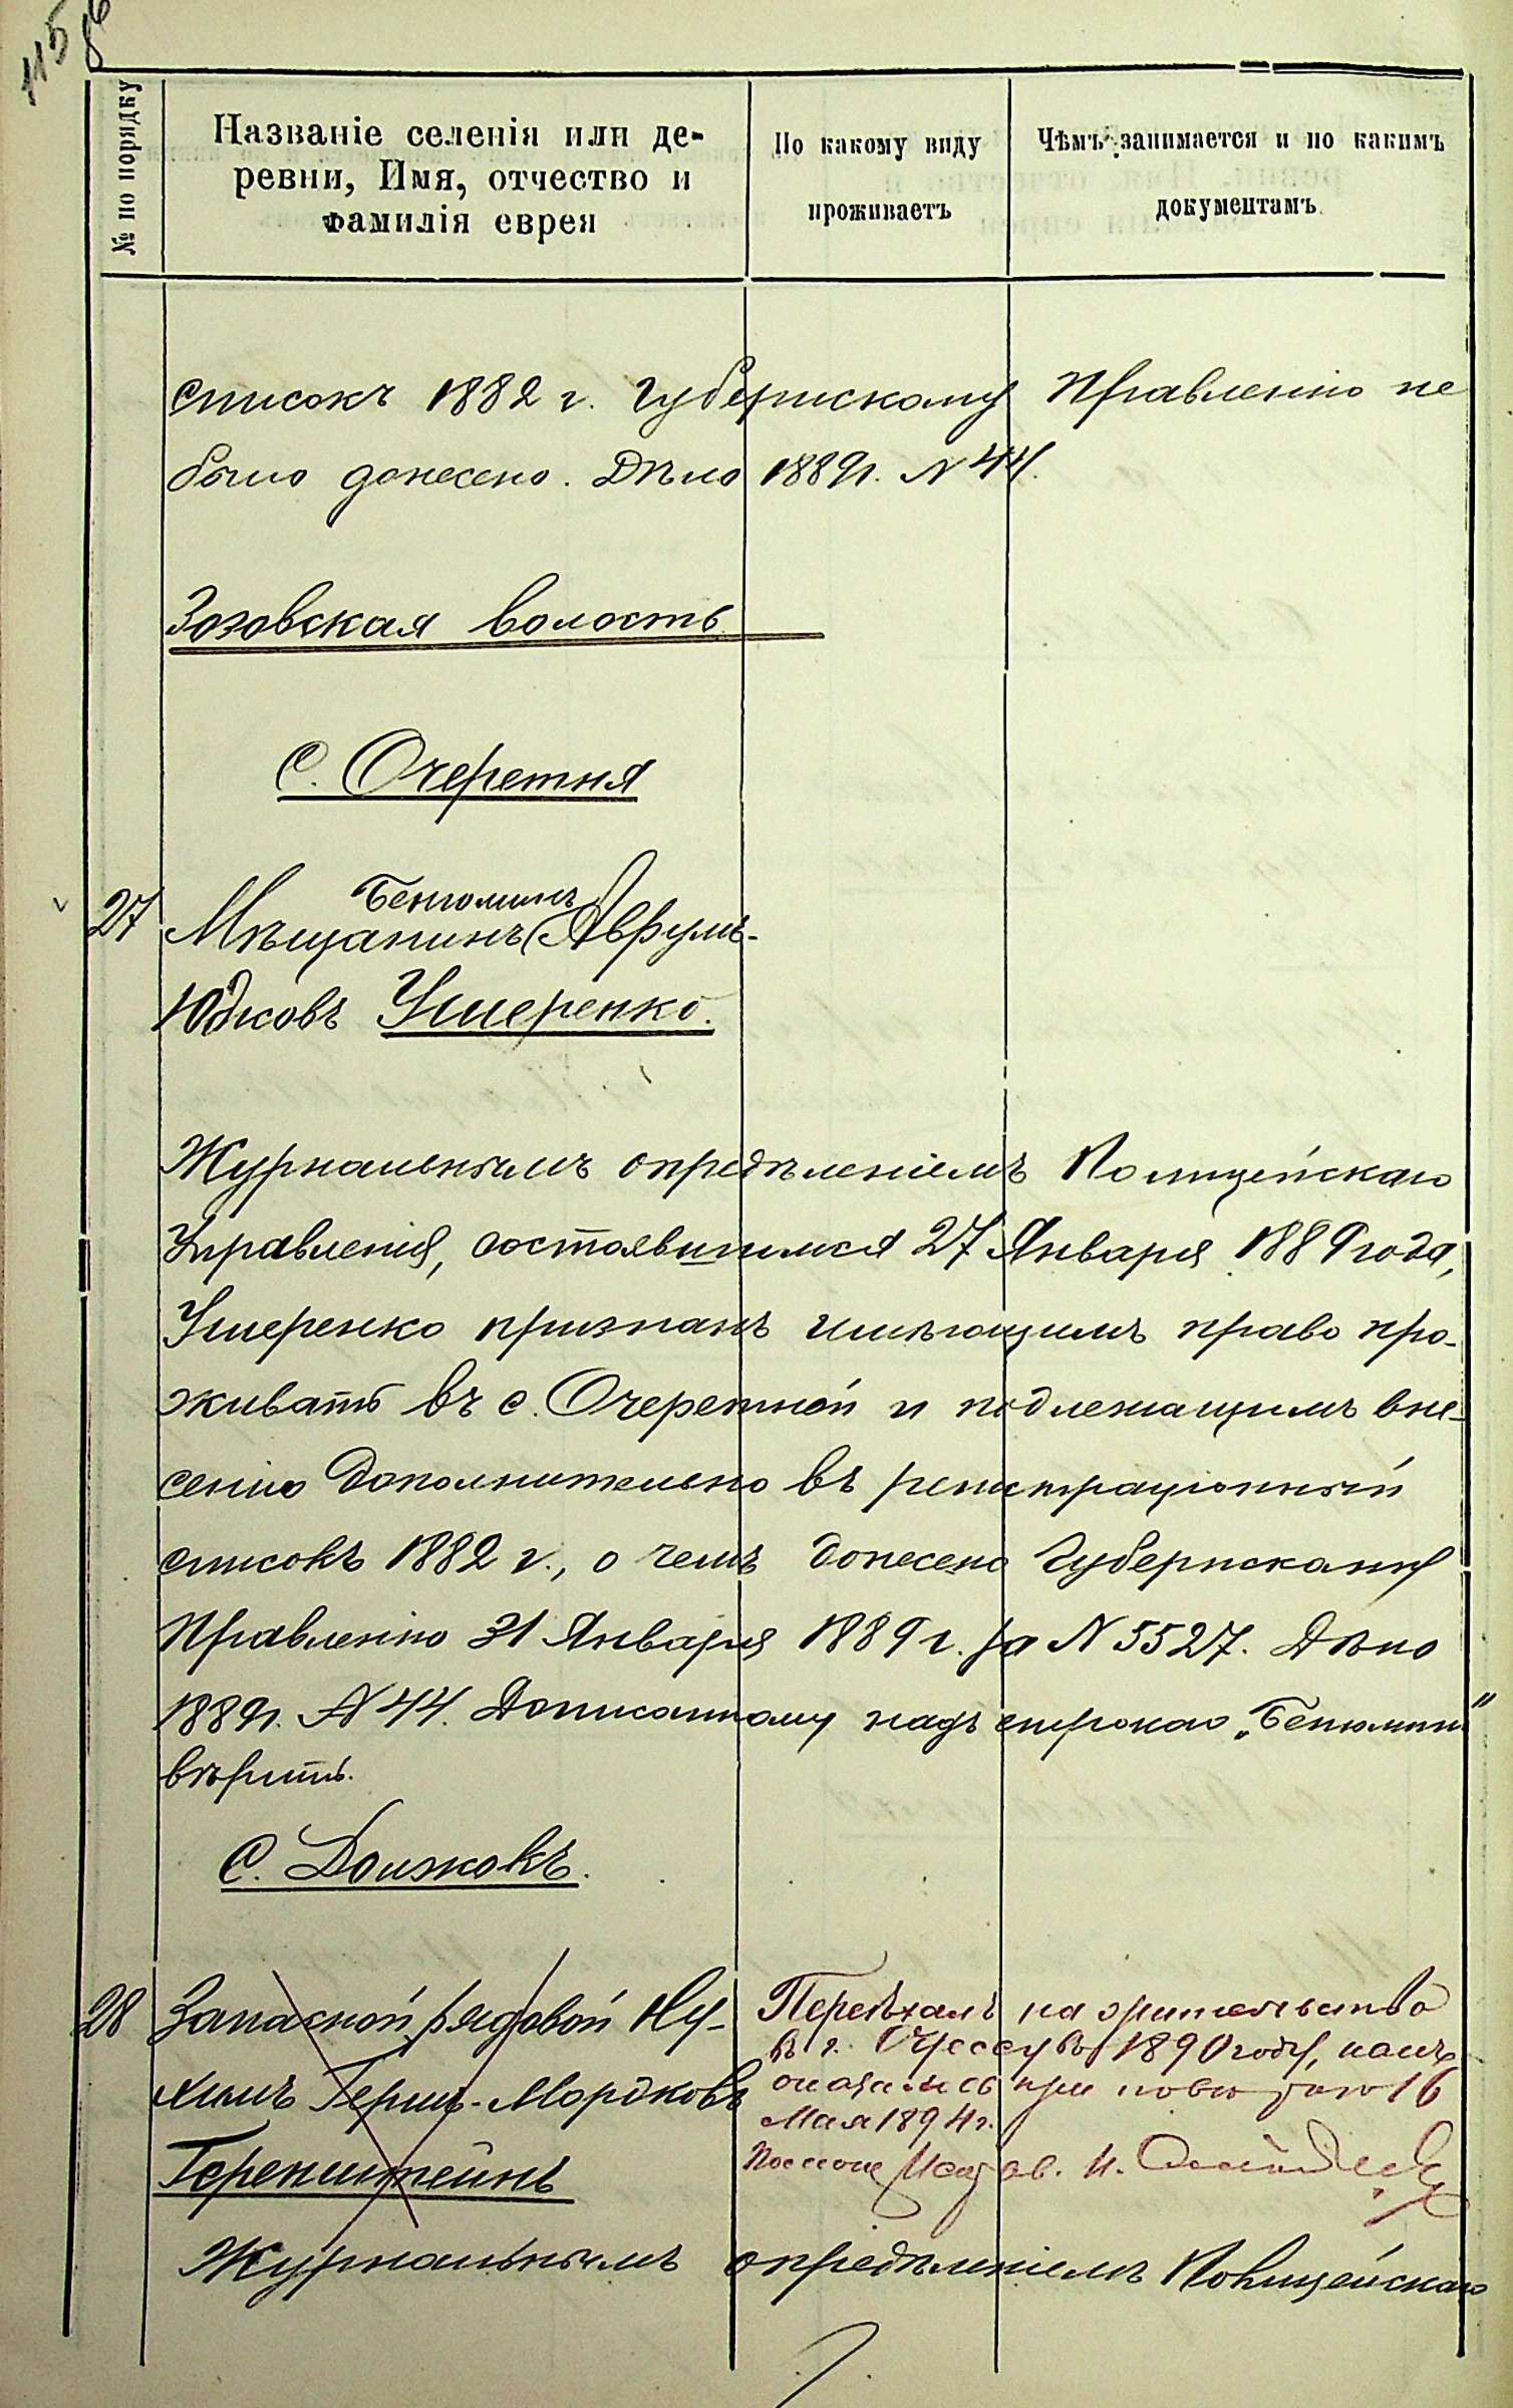 115
86
№ по порядку
Названіе селенія или де-
ревни, Имя, отчество и
фамилія еврея
По какому виду
проживаетъ
Чѣмъ занимается и по какимъ
документамъ
списокъ 1882 г. Губернскому Правленію не
было донесено. Дѣло 1889г. N 44.
Зозовская волость
С. Очеретня
27 Мѣщанинъ (Аврумъ-
Бенюминъ
Юдковъ Ушеренко.
Журнальнымъ опредѣленіемъ Полицейскаго
Управленія, состоявшимся 27 Января 1889 года,
Ушеренко признанъ имѣющимъ право про-
живать въ с. Очеретной и подлежащимъ вне-
сенію дополнительно въ регистраціонный
списокъ 1882 г., о чемъ донесено Губернскому
Правленію 31 Января 1889 г. за N 5527. Дѣло
1889г. N 44. Дописанному надъ строкою „Бенюминъ"
вѣрить.
С. Должокъ.
28 Запасной рядовой Ну-
химъ Герш-Мордковъ
Геренштейнъ
Переѣхалъ на жительство
въ г. Одессу въ 1890 году, какъ
оказалось при повѣ 16
Мая 1894 г.
Журнальнымъ опредѣленіемъ Полицейскаго